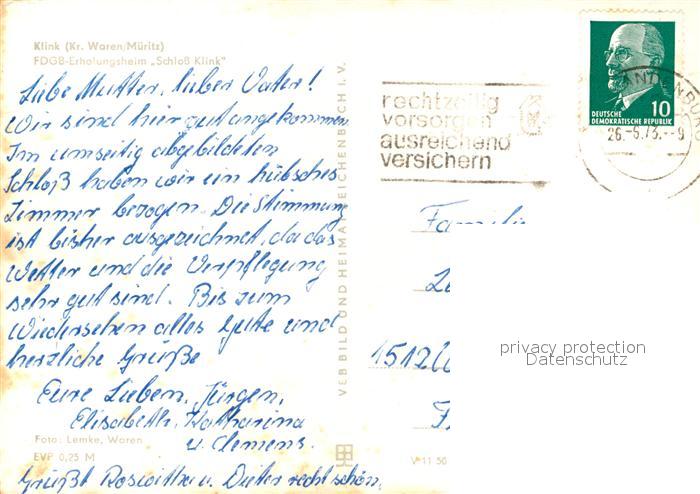 Klink (Kr. Waren/Müritz)
FDGB-Erholungsheim „Schloß Klink"
Liebe Mutter, lieber Vater!
Wir sind hier gut angekommen
Im umseitig abgebildeten
Schloß haben wir ein hübsches
Zimmer bezogen. Die Stimmung
ist bisher ausgezeichnet, da das
Wetter und die Verpflegung
sehr gut sind. Bis zum
Wiedersehen alles Gute und
herzliche Grüße
Eure Lieben, Jürgen,
Elisabeth, Katharina
u. Clemens.
Foto: Lemke, Waren
EVP 0,25 M
Grüßt Roswitha u. Dieter recht schön.
VEB BILD UND HEIMAT REICHENBACH I. V.
V 11 50
rechtzeitig
vorsorgen
ausreichend
versichern
10
DEUTSCHE
DEMOKRATISCHE REPUBLIK
26.-6.73.--9
Familie
1512
privacy protection
Datenschutz